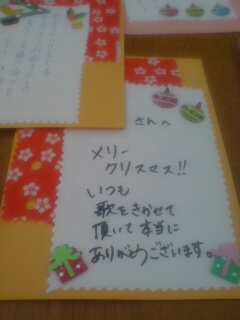 さんへ
メリー
クリスマス!!
いつも
歌をきかせて
頂いて本当に
ありがとうございます。